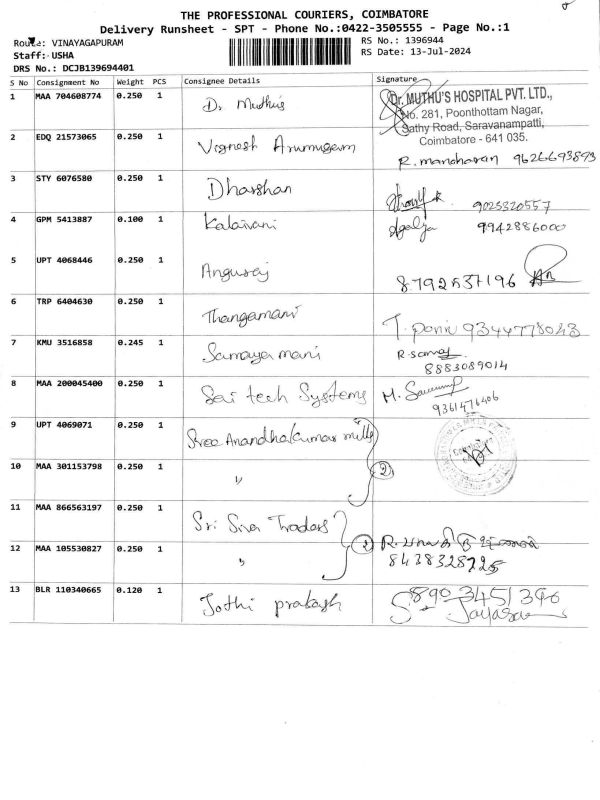 THE PROFESSIONAL COURIERS, COIMBATORE
Delivery Runsheet - SPT - Phone No.:0422-3505555 - Page No.:1
Route: VINAYAGAPURAM RS No.: 1396944
Staff: USHA RS Date: 13-Jul-2024
DRS No.: DCJB139694401
S No Consignment No Weight PCS Consignee Details Signature
1 MAA 704608774 0.250 1 Dr. Muthus
Dr. MUTHU'S HOSPITAL PVT. LTD.,
No. 281, Poonthottam Nagar,
Sathy Road, Saravanampatti,
Coimbatore - 641 035.
2 EDQ 21573065 0.250 1 Vignesh Arumugam R. manoharan 9626693893
3 STY 6076580 0.250 1 Dharshan 9025320557
4 GPM 5413887 0.100 1 Kalaivani Agalya 9942886000
5 UPT 4068446 0.250 1 Anguraj 8792537196
6 TRP 6404630 0.250 1 Thangamani T. Ponni 9344778043
7 KMU 3516858 0.245 1 Samaya mani R. Samay
8883089014
8 MAA 200045400 0.250 1 Sai tech Systems M.
9361476406
9 UPT 4069071 0.250 1 Sree Anandhakumar mills
10 MAA 301153798 0.250 1 " 2
11 MAA 866563197 0.250 1 Sri Siva Traders
12 MAA 105530827 0.250 1 " 2 R.
8438328725
13 BLR 110340665 0.120 1 Jothi prakash 8903451396